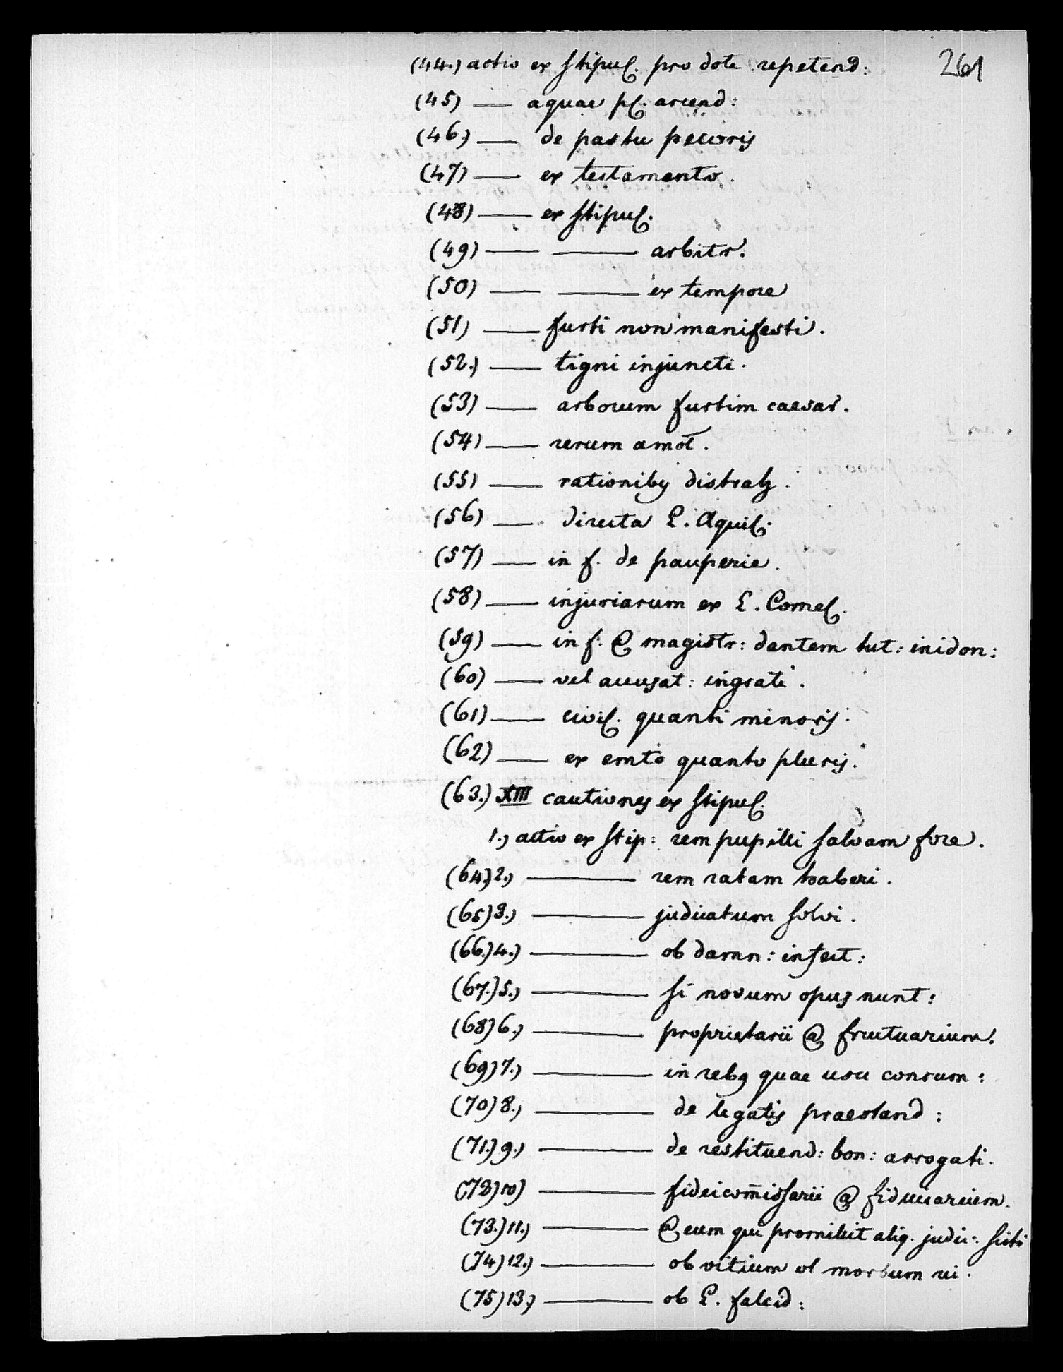 261
(44.) actio ex stipul. pro dote repetend:
(45) — aquae pl. arcend:
(46) — de pastu pecoris
(47) — ex testamento.
(48) — ex stipul.
(49) — — arbitr.
(50) — — ex tempore
(51) — furti non manifesti.
(52.) — tigni injuncti.
(53) — arborum furtim caesar.
(54) — rerum amot.
(55) — rationibus distrah.
(56) — directa L. Aquil.
(57) — in f. de pauperie.
(58) — injuriarum ex L. Cornel.
(59) — in f. @ magistr: dantem tut: inidon:
(60) — vel accusat: ingrati.
(61) — civil. quanti minoris.
(62) — ex emto quanto pluris.
(63.) XIII cautiones ex stipul.
1.) actio ex stip: rem pupilli salvam fore.
(64) 2.) — rem ratam haberi.
(65) 3.) — judicatum solvi.
(66.) 4.) — ob damn: infect:
(67.) 5.) — si novum opus nunt:
(68) 6.) — proprietarii @ fructuarium.
(69) 7.) — in rebus quae usu consum:
(70) 8.) — de legatis praestand:
(71.) 9.) — de restituend: bon: arrogati.
(72) 10) — fideicom̅issarii @ fiduciarium.
(73.) 11.) — @ eum qui promisit aliq. judic: sisti
(74) 12.) — ob vitium vel morbum rei.
(75) 13.) — ob L. falcid: